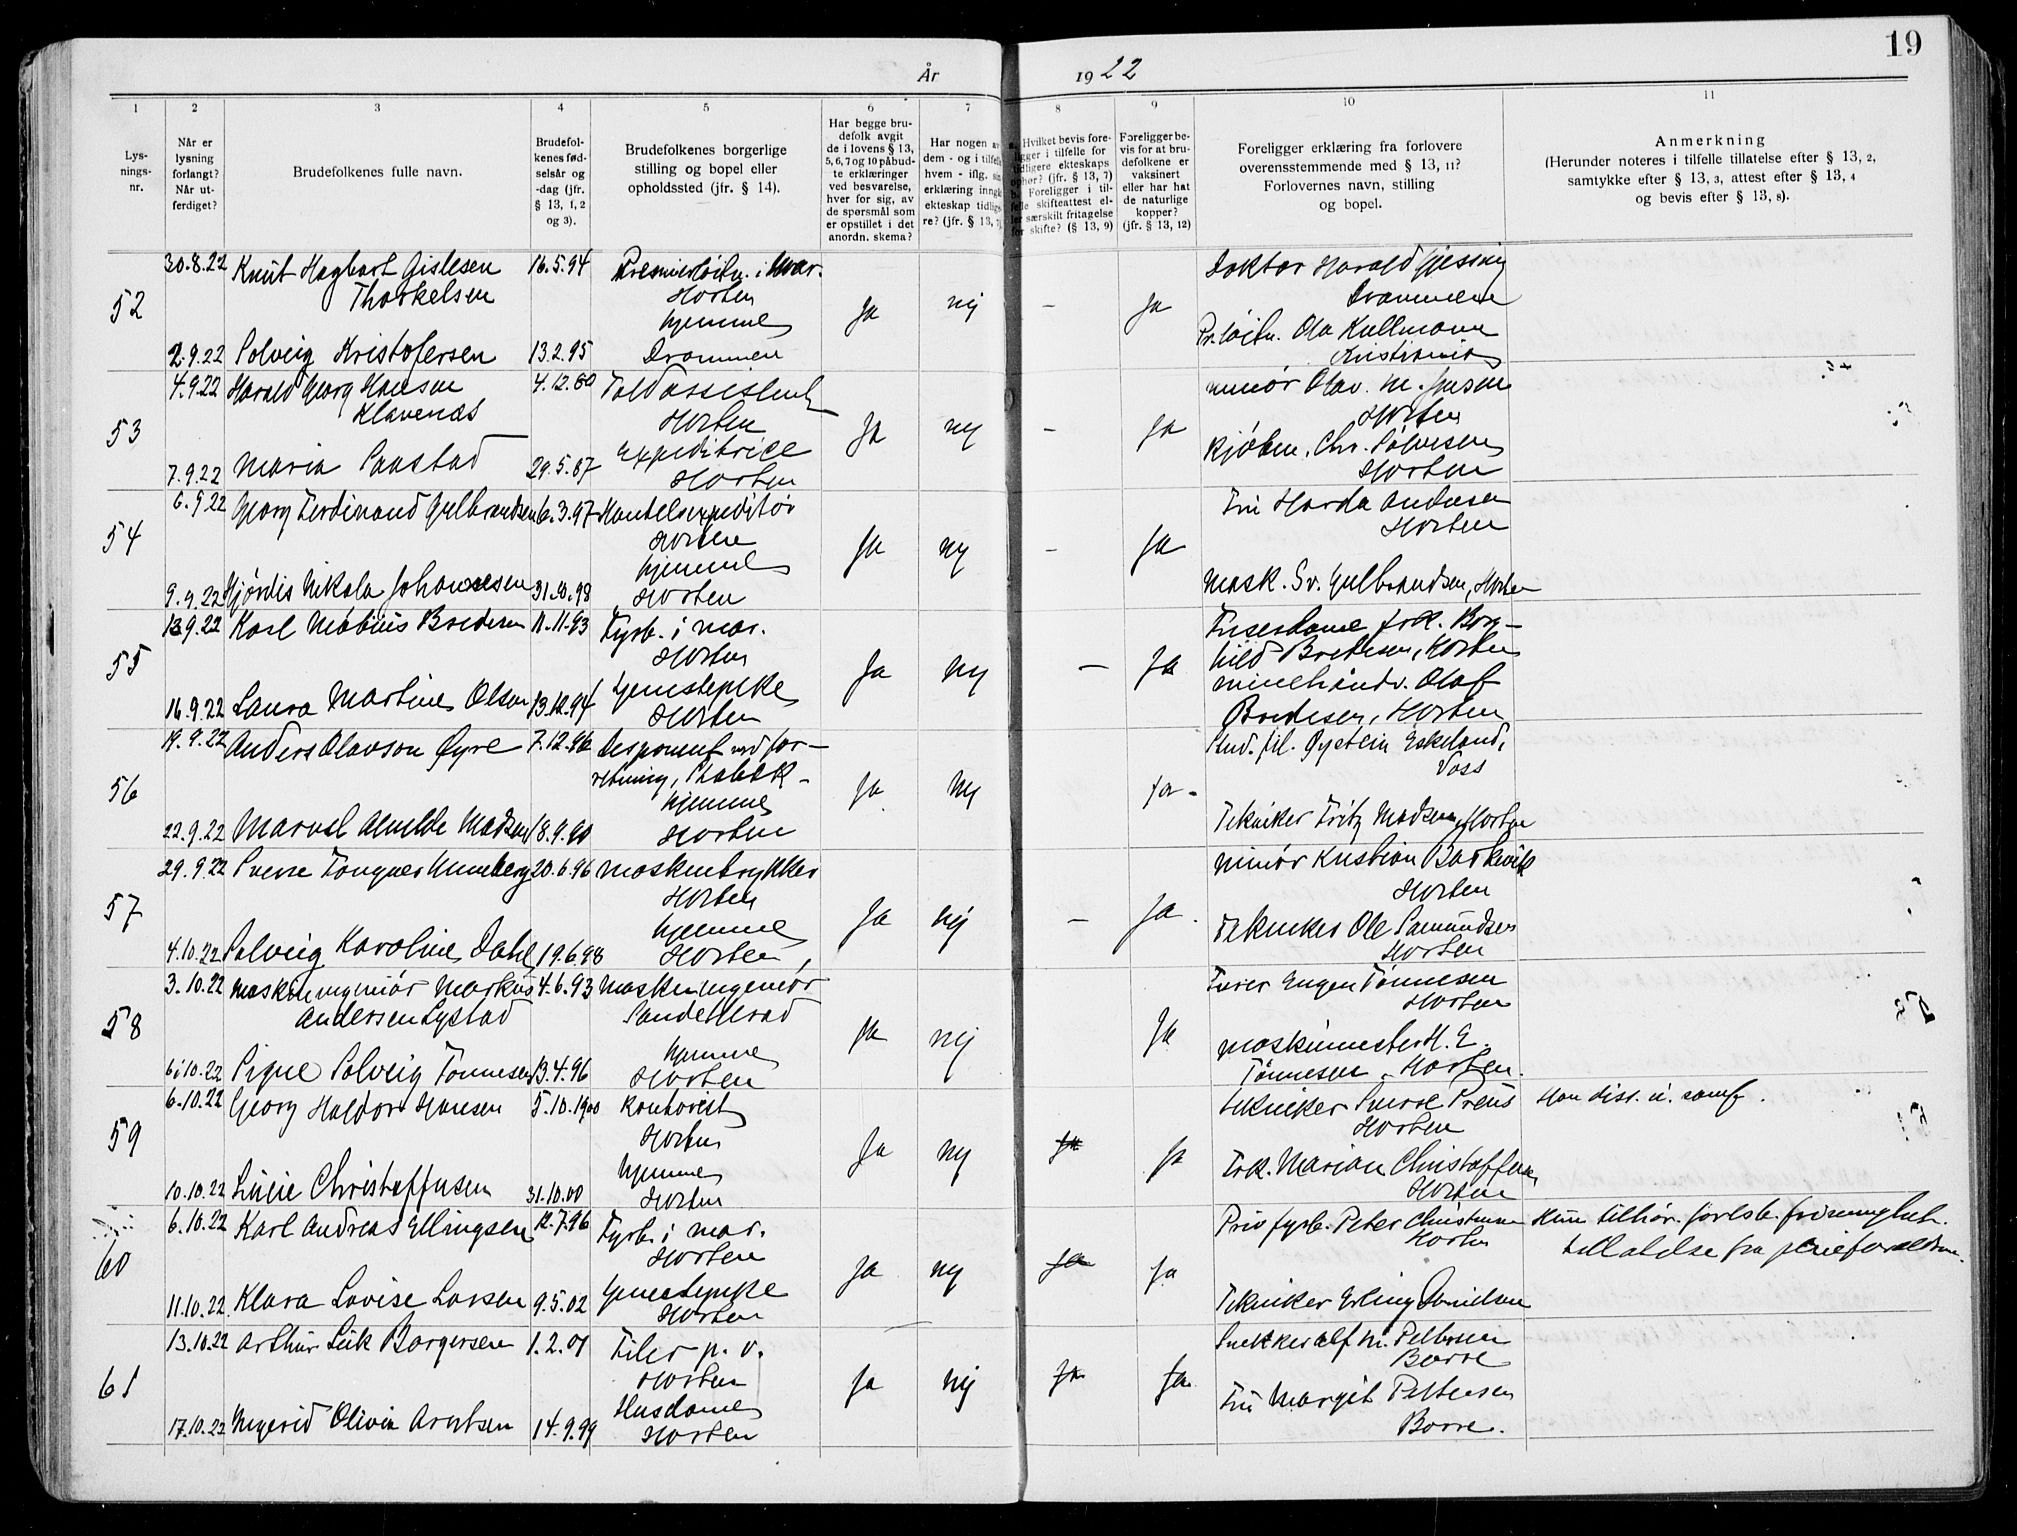 19
År 1922
1
2
3
4
5
6
7
8
9
10
11
Lys-
nings-
nr.
Når er
lysning
forlangt?
Når ut-
ferdiget?
Brudefolkenes fulle navn.
Brudefol-
kenes fød-
selsår og
-dag (jfr.
§ 13, 1, 2
og 3).
Brudefolkenes borgerlige
stilling og bopel eller
opholdssted (jfr. § 14).
Har begge bru-
defolk avgit
de i lovens § 13,
5, 6, 7 og 10 påbud-
te erklæringer
ved besvarelse,
hver for sig, av
de spørsmål som
er opstillet i det
anordn. skema?
Har nogen av
dem - og i tilfelle
hvem - iflg. sin
erklæring inngå
ekteskap tidlige
re? (jfr. § 13, 7)
a. Hvilket bevis fore-
ligger i tilfelle for
tidligere ekteskaps
ophør? (jfr. § 13, 7)
b. Foreligger i til-
felle skifteattest el-
ler særskilt fritagelse
for skifte? (§ 13, 9)
Foreligger be-
vis for at bru-
defolkene er
vaksinert
eller har hat
de naturlige
kopper?
(jfr. § 13, 12)
Foreligger erklæring fra forlovere
overensstemmende med § 13, 11?
Forlovernes navn, stilling
og bopel.
Anmerkning
(Herunder noteres i tilfelle tillatelse efter § 13, 2,
samtykke efter § 13, 3, attest efter § 13, 4
og bevis efter § 13, 8).
52
30.8.22 Knut Hagbart Gislesen 16.5.94 Premierløitn. i mar. Doktor Harald Gjessing
Thorkelsen Horten Drammen
hjemme Ja nej – Ja Pr.løitn. Ola Kullmann
2.9.22 Solveig Kristofersen 13.2.95 Drammen Kristiania
53
4.9.22 Harald Georg Hansen 4.12.60 Toldassistent minør Olav M. Jensen
Klavenæs Horten Ja nej – Ja Horten
Expeditrice Kjøbm. Chr. Sølvesen
7.9.22 Maria Saastad 29.5.67 Horten Horten
54
6.9.22 Georg Ferdinand Gulbrandsen 6.3.97 Handelsexpeditør Fru Harda Andersen
Horten Ja nej – Ja Horten
hjemme
9.9.22 Hjørdis Nikola Johannesen 31.10.98 Horten Mask. Sv. Gulbrandsen, Horten
55
13.9.22 Karl Møbius Bredesen 11.11.93 Fyrb. i mar. Friserdame frk. Borg-
Horten Ja nej – Ja hild Bredesen, Horten
Tjenestepike minehåndv. Olaf
16.9.22 Laura Martine Olsen 13.12.94 Horten Bredesen, Horten
56
19.9.22 Anders Olavson Øyre 7.12.96 Disponent ved for- Stud. fil. Øystein Eskeland,
retning, Stabæk Voss
hjemme Ja nej Ja.
22.9.22 Marvel Alvilde Madsen 18.9.90 Horten Tekniker Fritz Madsen, Horten
57
29.9.22 Sverre Tongner Unneberg 20.6.96 maskintrykker minør Kristian Barkevik
Horten Horten
hjemme Ja nej – Ja. Tekniker Ole Samundsen
4.10.22 Solveig Karoline Dahl 19.6.98 Horten Horten
58
3.10.22 maskiningeniør Markus 4.6.93 maskiningeniør Furer Eugen Tønnesen
Andersen Lystad Sande Horten
hjemme Ja nej Ja maskinmester H. E.
6/10.22 Signe Solveig Tønnesen 13.4.96 Horten Tønnesen, Horten.
59
6.10.22 Georg Haldor Hansen 5.10.1900 Kontorist Tekniker Sverre Preus Han diss. u. samf.
Horten Horten
hjemme Ja nej Ja Ja Frk. Marian Christoffersen
10.10.22 Lucie Christoffersen 31.10.00 Horten Horten
60
6.10.22 Karl Andreas Ellingsen 12.7.96 Fyrb. i mar. Prov. fyrb. Peter Christensen Hun tilhør.
Horten Horten tillatelse fra
Tjenestepike Ja nej Ja Ja
11.10.22 Klara Lovise Larsen 9.5.02 Horten Tekniker Erling Danielsen
61
13.10.22 Arthur Leik Borgersen 1.2.01 Filer p. v. Snekker Alf M. Pettersen
Horten Borre
Husdame Ja nej Ja Ja Fru Margit Pettersen
17.10.22 Ingerid Olivia Arntsen 14.9.99 Horten Borre.